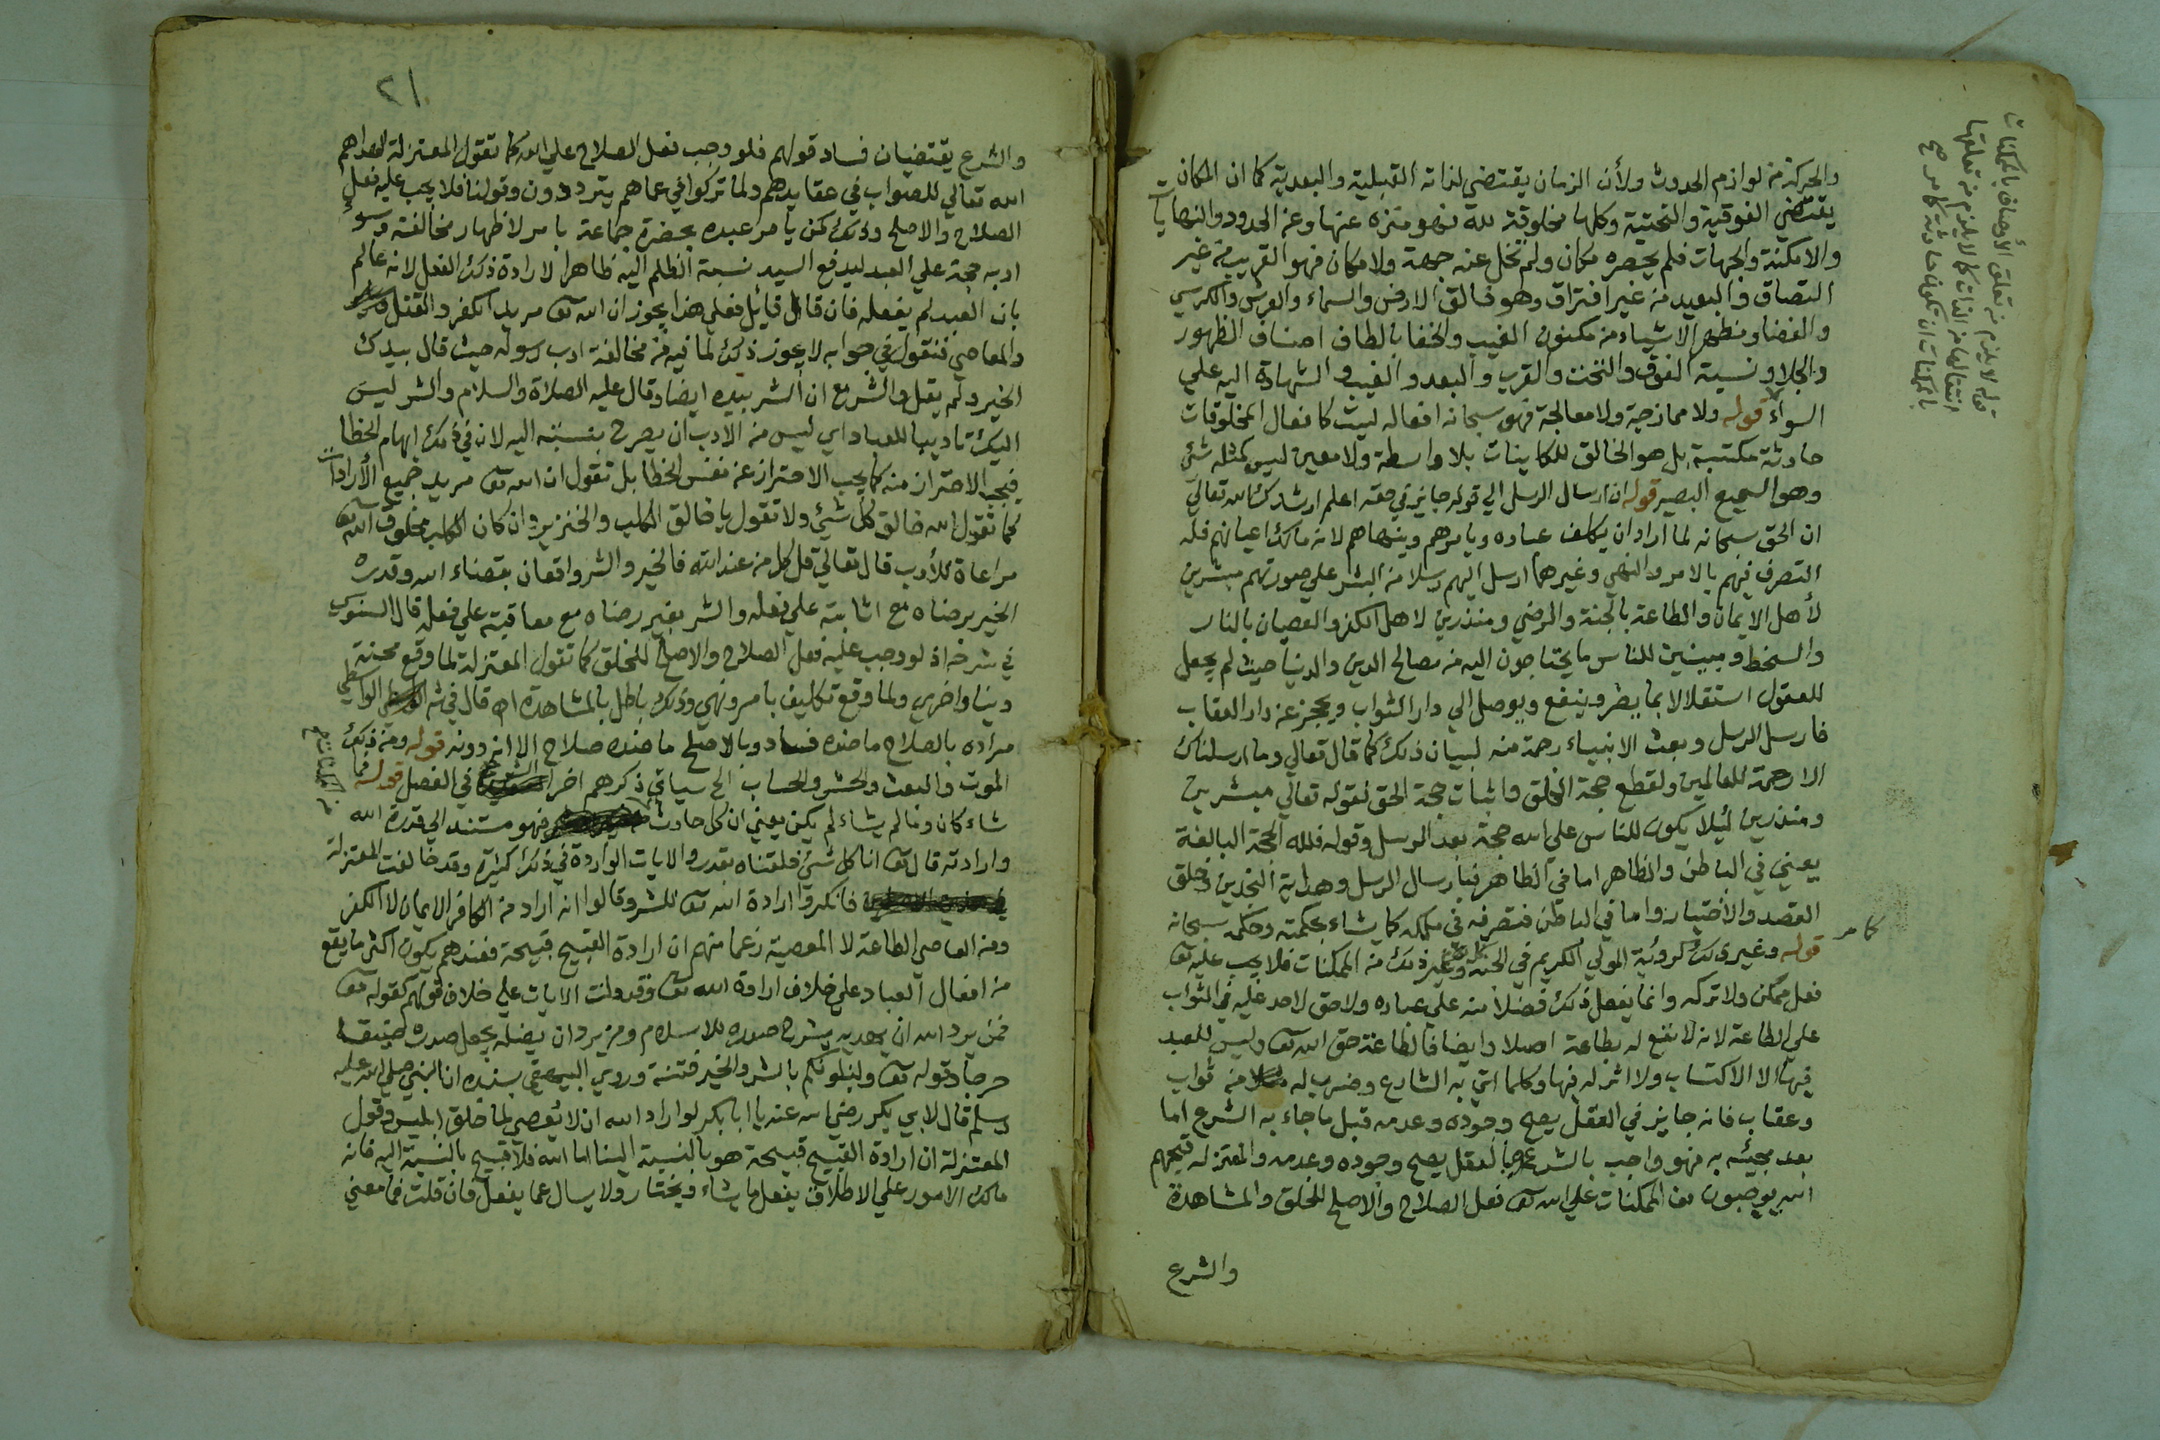 والحركة من لوازم الحدوث ولأن الزمان يقتضي لذاته القبلية والبعدية كما ان المكان
يقتضي الفوقية والتحتية وكلها مخلوقة لله فهو منزه عنها وعن الحدود والنهايات
والامكنة والجهات فلم يحصره مكان ولم تخل عنه جهة ولا مكان فهو القريب من غير
التصاق والبعيد من غير افتراق وهو خالق الارض والسماء والعرش والكرسي
والفضا ومظهر الاشياء من مكنون الغيب والخفا بالطاف اصناف الظهور
والجلا ونسبة الفوق والتحت والقرب والبعد والغيب والشهادة اليه علي
السواء قوله ولا ممازجة ولا معالجة فهو سبحانه افعاله ليست كافعال المخلوقات
حادثة مكتسبة بل هو الخالق للكاينات بلا واسطة ولا معين ليس كمثله شئ
وهو السميع البصير قوله ان ارسال الرسل الي قوله جايز في حقه اعلم ارشدك الله تعالي
ان الحق سبحانه لما اراد ان يكلف عباده ويامرهم وينهاهم لانه مالك اعيانهم فله
التصرف فيهم بالامر والنهي وغيرهما ارسل اليهم رسلا من البشر علي صورتهم مبشرين
لأهل الايمان والطاعة بالجنة والرضي ومنذرين لاهل الكفر والعصيان بالنار
والسخط ومبينين للناس ما يحتاجون اليه من مصالح الدين والدنيا حيث لم يجعل
للعقول استقلالا بما يضر وينفع ويوصل الي دار الثواب ويحجز عن دار العقاب
فارسل الرسل وبعث الانبياء رحمة منه لبيان ذلك كما قال تعالي وما ارسلناك
الا رحمة للعالمين ولقطع حجة الخلق واثبات حجة الحق لقوله تعالي مبشرين
ومنذرين لئيلا يكون للناس علي الله حجة بعد الرسل وقوله فلله الحجة البالغة
يعني في الباطن والظاهر اما في الظاهر فبارسال الرسل وهداية النجدين وخلق
القصد والاختيار واما في الباطن فتصرفه في ملكه كما يشاء بحكمته وحكمه سبحانه
قوله وغير ذلك كروئية المولي الكريم في الجنة وغير ذلك من الممكنات فلا يجب عليه تعا
فعل ممكن ولا تركه وانما يفعل ذلك فضلا منه علي عباده ولا حق لاحد عليه في الثواب
علي الطاعة لانه لا نفع له بطاعة اصلا وايضا فالطاعة حق الله تعا وليس للعبد
فيها الا الاكتساب ولا اثر له فيها وكلما اتي به الشارع وضرب له من ثواب
وعقاب فانه جايز في العقل يصح وجوده وعدمه قبل ما جاء به الشرع اما
بعد مجيئه به فهو واجب بالشرع وبالعقل يصح وجوده وعدمه والمعتزلة قبحهم
الله يوجبون من الممكنات علي الله تعا فعل الصلاح والاصلح للخلق والمشاهدة
والشرع
قوله لا يلزم من تعلق الأوصاف بالممكنات
كما لا يلزم من تعلقها
بالممكنات ان تكون حادثة كما مر صح
كما مر
٢١
والشرع يقتضيان فساد قولهم فلو وجب فعل الصلاح علي الله كما تقول المعتزلة لهداهم
الله تعالي للصواب في عقايدهم ولما تركوا في عماهم يترددون وقولنا فلا يجب عليه فعل
الصلاح والاصلح وذلك كمن يامر عبده بحضرة جماعة بامر لاظهار مخالفته وسوء
ادبه حجة علي العبد ليدفع السيد نسبة الظلم اليه ظاهرا لا لارادة ذلك الفعل لانه عالم
بان العبد لم يفعله فان قال قائل فعلي هذا يجوز ان الله تعا مريد الكفر والقتل
والمعاصي فنقول في جوابه لا يجوز ذلك لما فيه من مخالفة ادب رسوله حيث قال بيدك
الخير ولم يقل والشر مع ان الشر بيده ايضا وقال عليه الصلاة والسلام والشر ليس
اليك تاديبا للعباد اي ليس من الادب ان يصرح بنسبته اليه لان في ذلك ايهام الخطا
فيجب الاحتراز منه كما يجب الاحتراز عن نفس الخطا بل تقول ان الله تعا مريد جميع الأرادات
كما تقول الله خالق كل شيئ ولا تقول يا خالق الكلب والخنزير وان كان الكلب مخلوق لله تعا
مراعاة للأدب قال تعالي قل كل من عند الله فالخير والشر واقعان بقضاء الله وقدره
الخير برضاه مع اثابته علي فعله والشر بغير رضاه مع معاقبته علي فعله قال السنوسي
في شرحه اذ لو وجب عليه فعل الصلاح والاصلح للخلق كما تقول المعتزلة لما وقع محنة
دينا واخري ولما وقع تكليف بامر ونهي وذلك باطل بالمشاهدة اه قال في شرح الواسطي
مراده بالصلاح ما ضده فساد وبالاصلح ما ضده صلاح الا انه دونه قوله ومن ذلك
الموت والبعث والحشر والحساب الخ سياتي ذكرهم اخر في الفصل قوله فما
شاء كان وما لم يشاء لم يكن يعني ان كل حادث فهو مستند الي قدرة الله
وارادته قال تعا انا كل شيئ خلقناه بقدر والايات الواردة في ذلك كثيرة وقد خالفت المعتزلة
فانكروا ارادة الله تعا للشر وقالوا انه اراد من الكافر الايمان لا الكفر
ومن العاصي الطاعة لا المعصية زعما منهم ان ارادة القبيح قبيحة فعندهم يكون اكثر ما يقع
من افعال العباد علي خلاف ارادة الله تعا وقد دلت الايات علي خلاف قولهم كقوله تعا
فمن يرد الله ان يهديه يشرح صدره للاسلام ومن يرد ان يضله يجعل صدره ضيقا
حرجا وقوله تعا ولنبلونكم بالشر والخير فتنة وروي البيهقي بسنده ان النبي صلي الله عليه
وسلم قال لابي بكر رضي الله عنه يا ابا بكر لو اراد الله ان لا يعصي لما خلق ابليس وقول
المعتزلة ان ارادة القبيح قبيحة هو بالنسبة الينا اما الله فلا قبيح بالنسبة اليه فانه
مالك الامور علي الاطلاق يفعل ما يشاء ويختار ولا يسال عما يفعل فان قلت فما معني